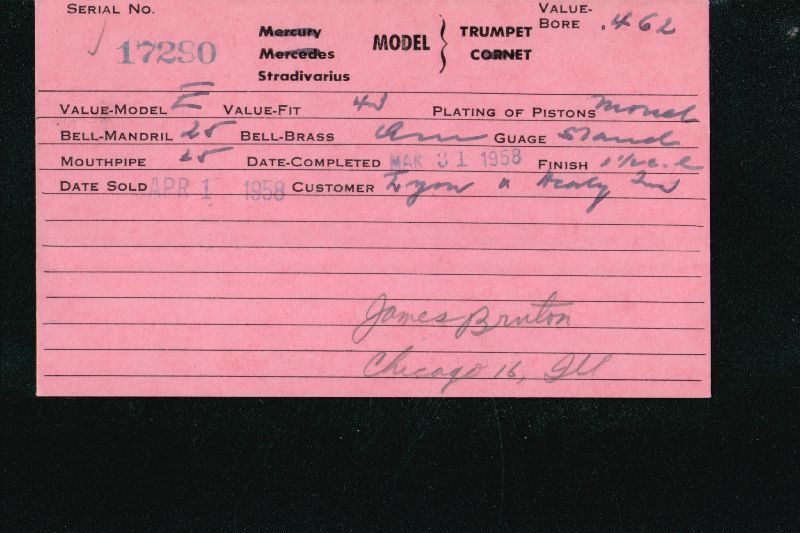 SERIAL NO.
17280
Mercury
Mercedes
Stradivarius
MODEL
TRUMPET
CORNET
VALUE-BORE .462
VALUE-MODEL E VALUE-FIT 43 PLATING OF PISTONS Monel
BELL-MANDRIL 25 BELL-BRASS GUAGE Stand
MOUTHPIPE 25 DATE-COMPLETED MAR 31 1958 FINISH
DATE SOLD APR 1 1958 CUSTOMER Lyon & Healy Inc
James Bruton
Chicago 16, Ill